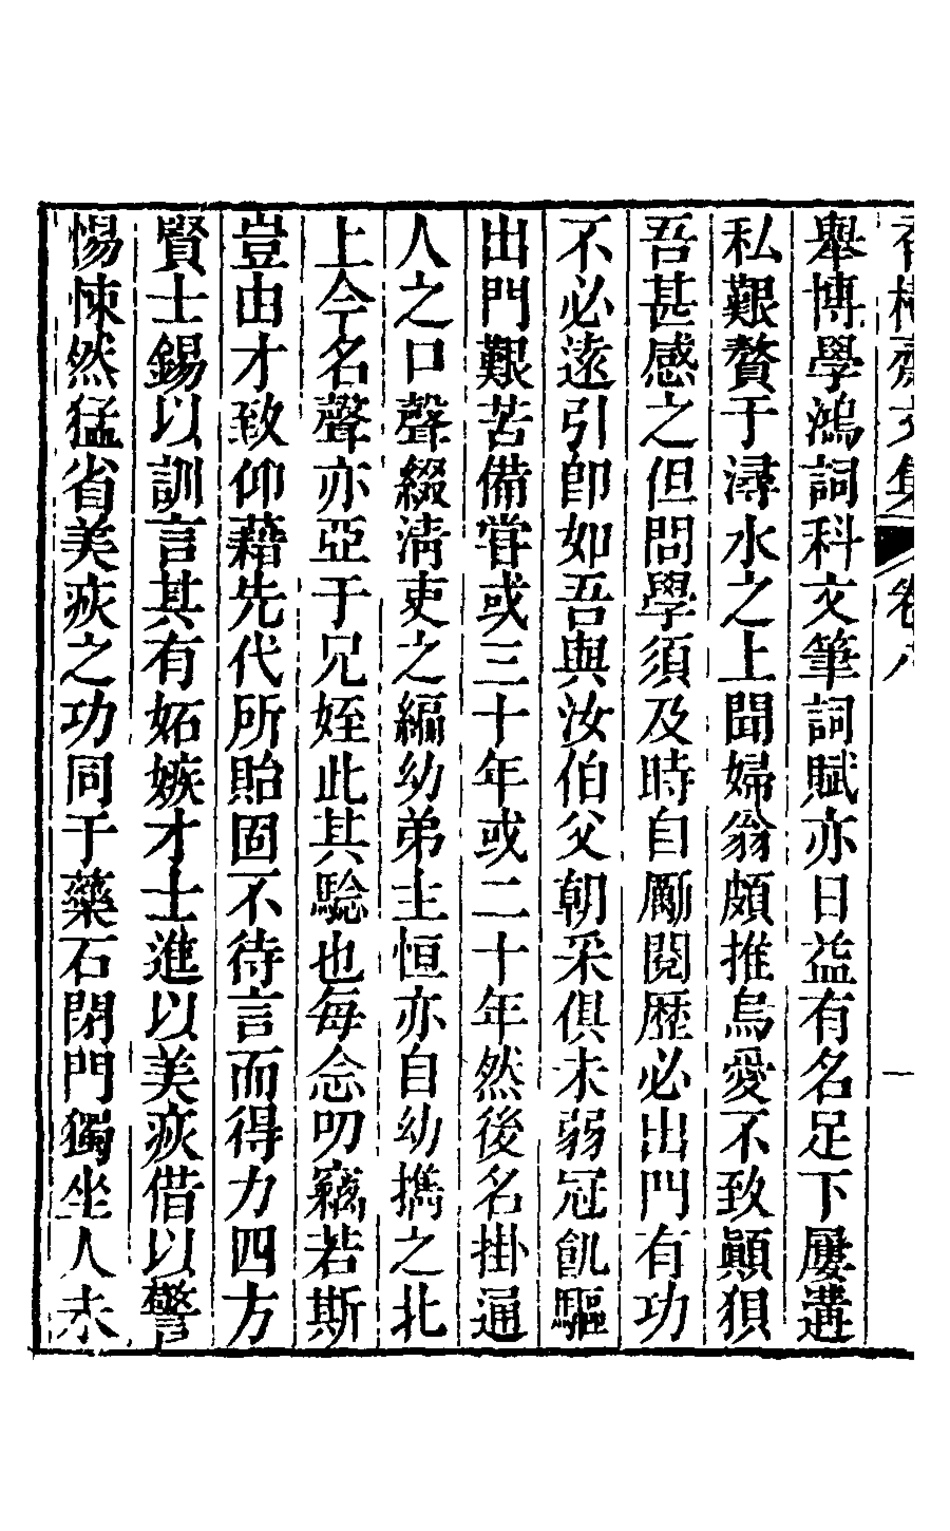 齋文集
卷八
一
舉博學鴻詞科文筆詞賦亦日益有名足下屢遘
私艱贅于潯水之上聞婦翁頗推烏愛不致顚狽
吾甚感之但問學須及時自勵閱歷必出門有功
不必遠引卽如吾與汝伯父朝采俱未弱冠飢驅
出門艱苦備嘗或三十年或二十年然後名掛通
人之口聲綴淸吏之編幼弟主恒亦自幼攜之北
上今名聲亦亞于兄姪此其驗也每念叨竊若斯
豈由才致仰藉先代所貽固不待言而得力四方
賢士錫以訓言其有妬嫉才士進以美疢借以警
惕悚然猛省美疢之功同于藥石閉門獨坐人未